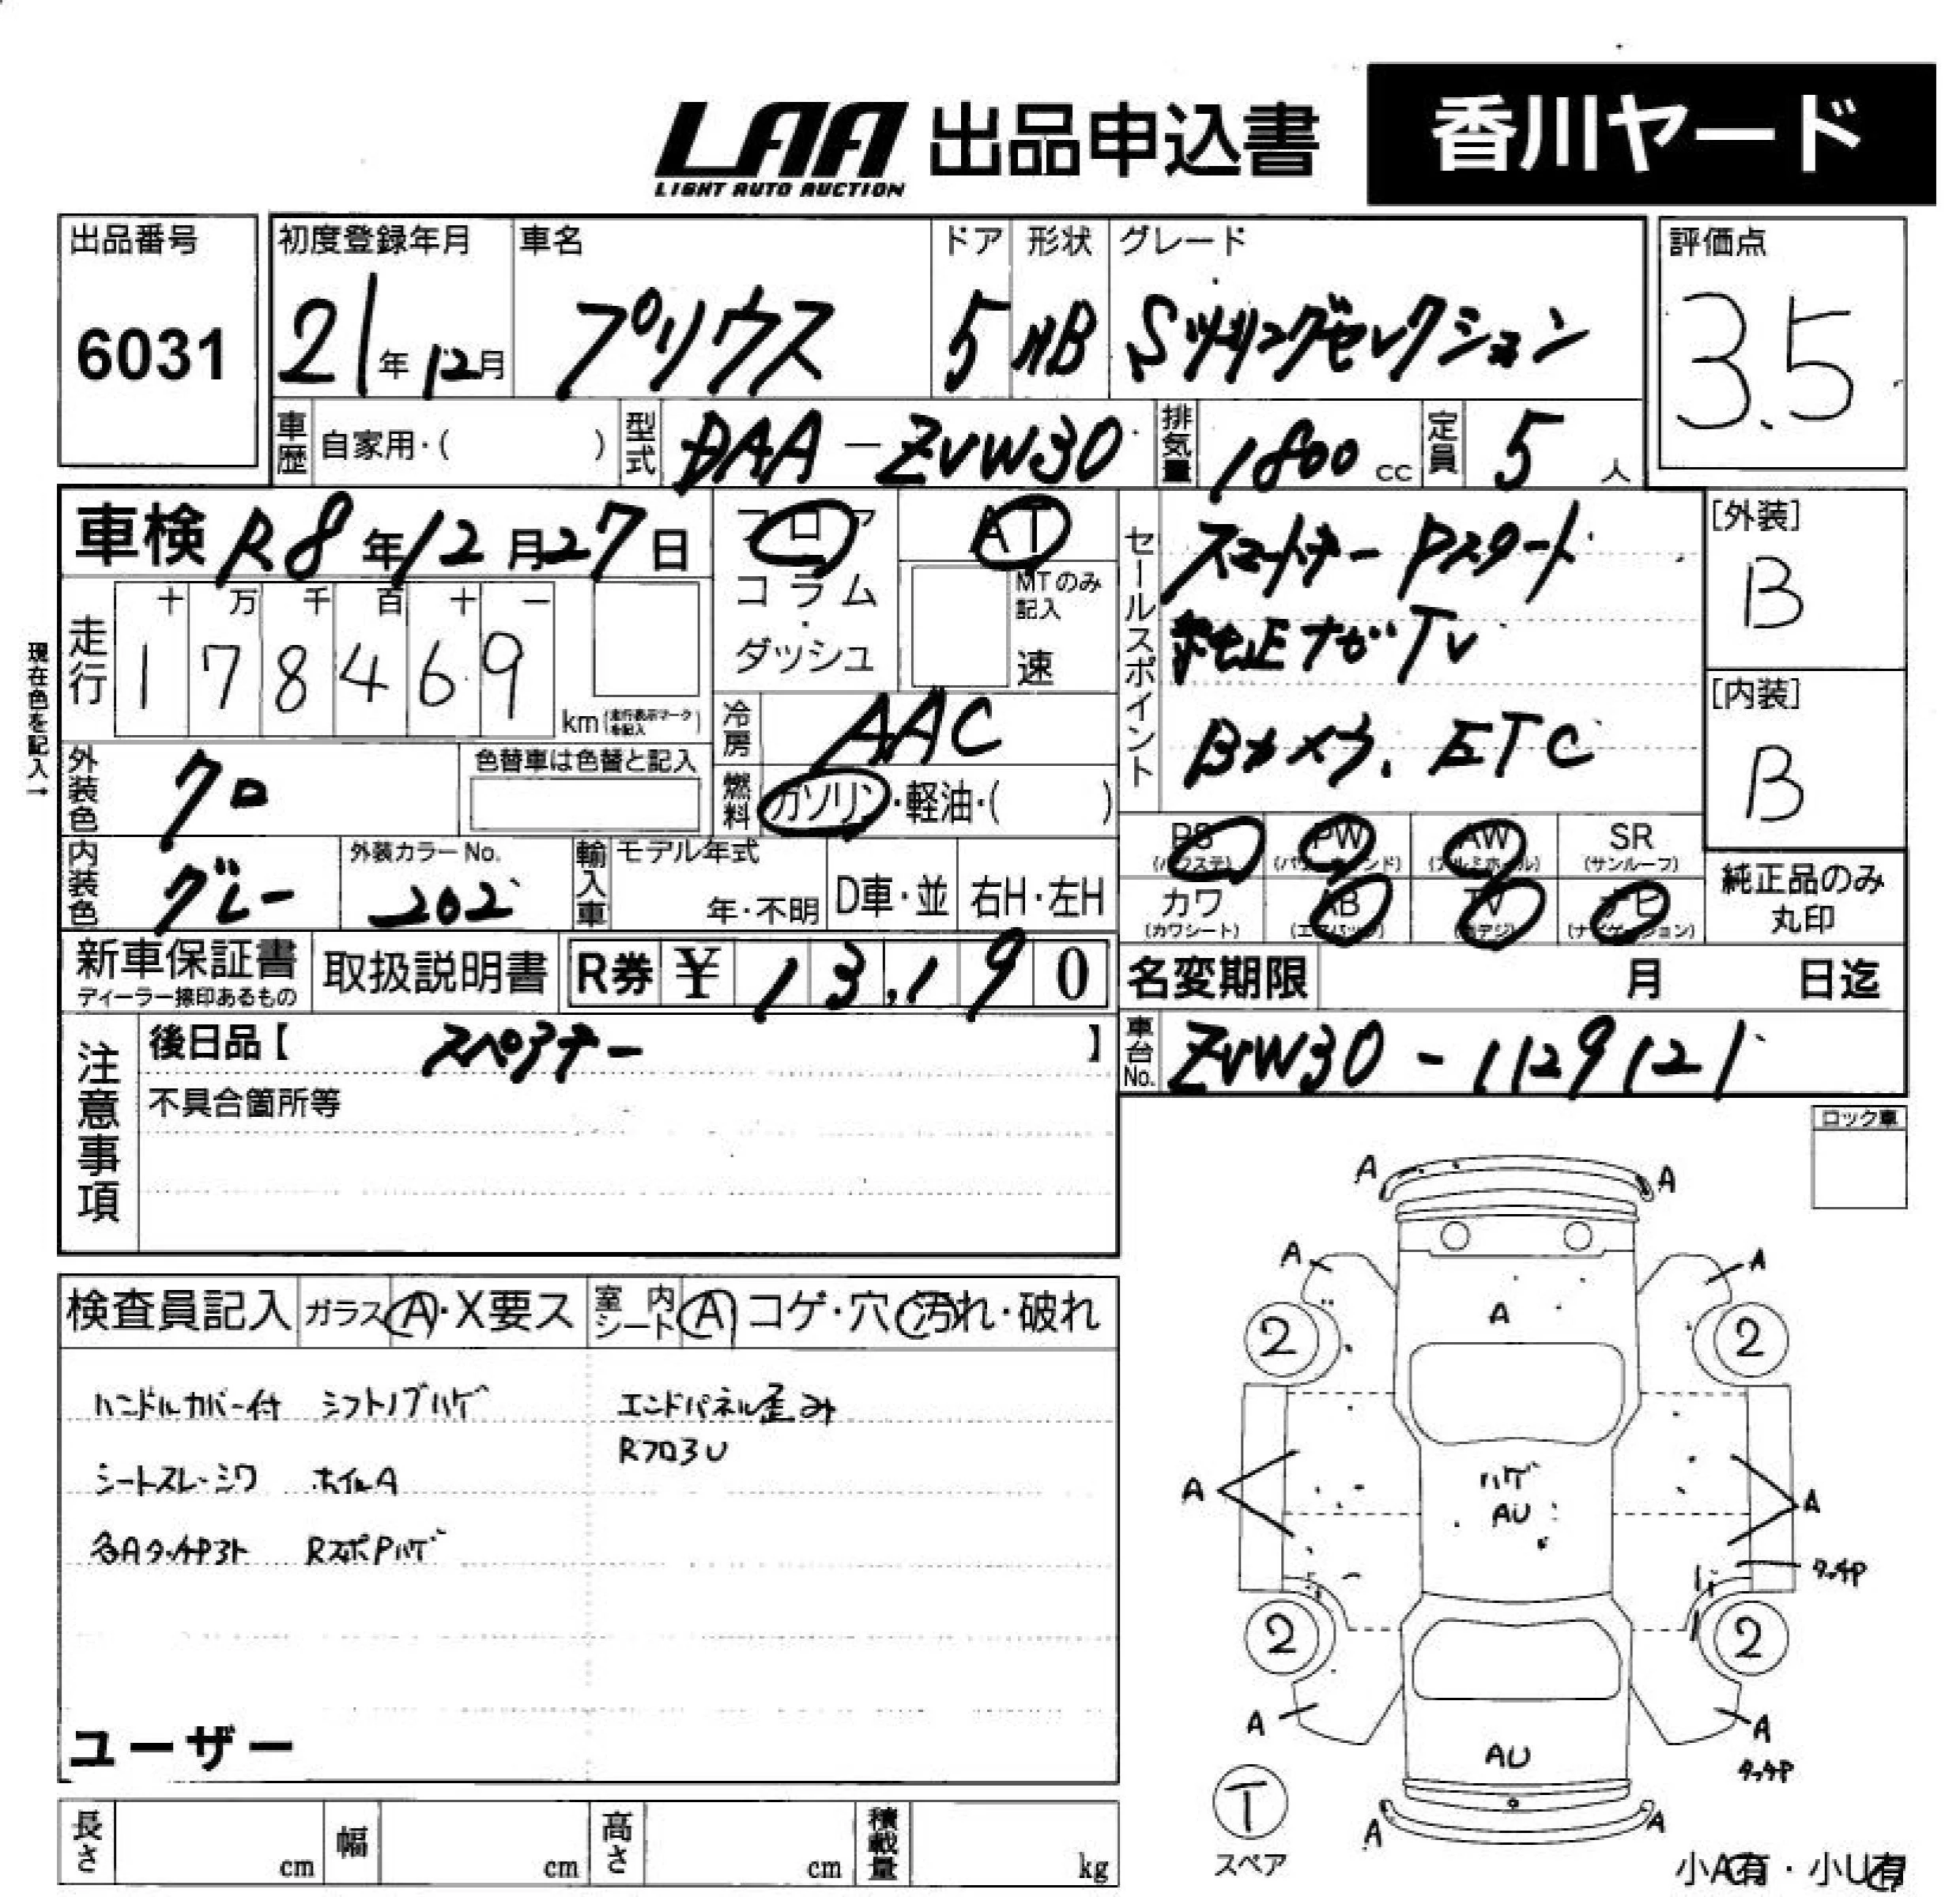 LAA 出品申込書 香川ヤード
LIGHT AUTO AUCTION
出品番号 初度登録年月 車名 ドア 形状 グレード 評価点
6031 21年12月 プリウス 5 HB Sツーリングセレクション 3.5
車歴 自家用・( ) 型式 DAA-ZVW30 排気量 1800cc 定員 5人
車検 R8年12月27日 フロア AT
コラム・ MTのみ記入
ダッシュ 速
セールスポイント スマートキー Pスタート
純正ナビTV
Bカメラ. ETC
[外装]
B
[内装]
B
現在色を記入→
走行 十 万 千 百 十 一
1 7 8 4 6 9 km (走行表示マークを記入)
冷房 AAC
外装色 クロ 色替車は色替と記入
燃料 ガソリン・軽油・( )
内装色 グレー 外装カラーNo. 202
輸入車 モデル年式 年・不明 D車・並 右H・左H
PS (パワステ) PW (パワーウィンド) AW (アルミホイール) SR (サンルーフ)
カワ (カワシート) AB (エアバッグ) TV (地デジ) ナビ (ナビゲーション)
純正品のみ
丸印
新車保証書 取扱説明書 R券 ¥ 13,190
ディーラー捺印あるもの
名変期限 月 日迄
注意事項 後日品【 スペアキー 】
不具合箇所等
車台No. ZVW30-1129121
ロック車
検査員記入 ガラス A・X要ス 室内シート A コゲ・穴・汚れ・破れ
ハンドルカバー付 シフトノブハゲ エンドパネル歪み
Rフロ3U
シートスレ・シワ ホイルA
各Aタッチ P3ト RスポPハゲ
ユーザー
長さ cm 幅 cm 高さ cm 積載量 kg
A A
A A
A
2 2
A A
ハゲ
AU
タッチP
2 2
A A
AU
タッチP
T
スペア
A A
小A有・小U有